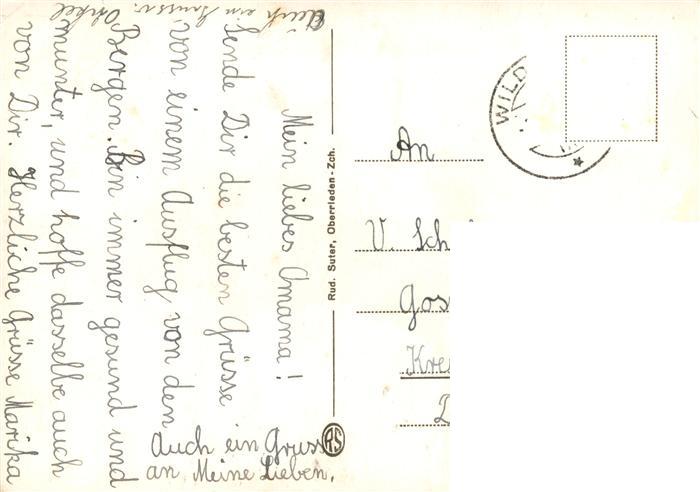 Mein liebes Omama!
Sende Dir die besten Grüsse
von einem Ausflug von den
Bergen. Bin immer gesund und
munter, und hoffe dasselbe auch
von Dir. Herzliche Grüsse Marika
Auch ein Gruss
an Meine Lieben.
Auch ein
Rud. Suter, Oberrieden - Zch.
RS
WILD
An
V. Sch
Gos
Kre